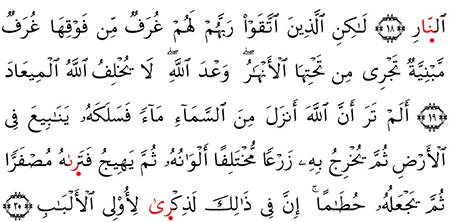 ٱلنَّارِ ﴿١٨﴾ لَٰكِنِ ٱلَّذِينَ ٱتَّقَوْا۟ رَبَّهُمْ لَهُمْ غُرَفٌ مِّن فَوْقِهَا غُرَفٌ
مَّبْنِيَّةٌ تَجْرِى مِن تَحْتِهَا ٱلْأَنْهَٰرُ ۖ وَعْدَ ٱللَّهِ ۖ لَا يُخْلِفُ ٱللَّهُ ٱلْمِيعَادَ
﴿١٩﴾ أَلَمْ تَرَ أَنَّ ٱللَّهَ أَنزَلَ مِنَ ٱلسَّمَآءِ مَآءً فَسَلَكَهُۥ يَنَٰبِيعَ فِى
ٱلْأَرْضِ ثُمَّ يُخْرِجُ بِهِۦ زَرْعًا مُّخْتَلِفًا أَلْوَٰنُهُۥ ثُمَّ يَهِيجُ فَتَرَىٰهُ مُصْفَرًّا
ثُمَّ يَجْعَلُهُۥ حُطَٰمًا ۚ إِنَّ فِى ذَٰلِكَ لَذِكْرَىٰ لِأُو۟لِى ٱلْأَلْبَٰبِ ﴿٢٠﴾